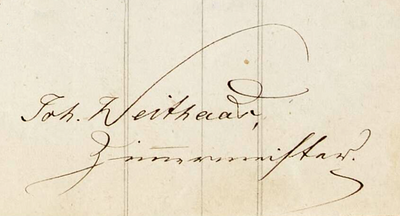 Joh. Weithaas,
Zimmermeister.